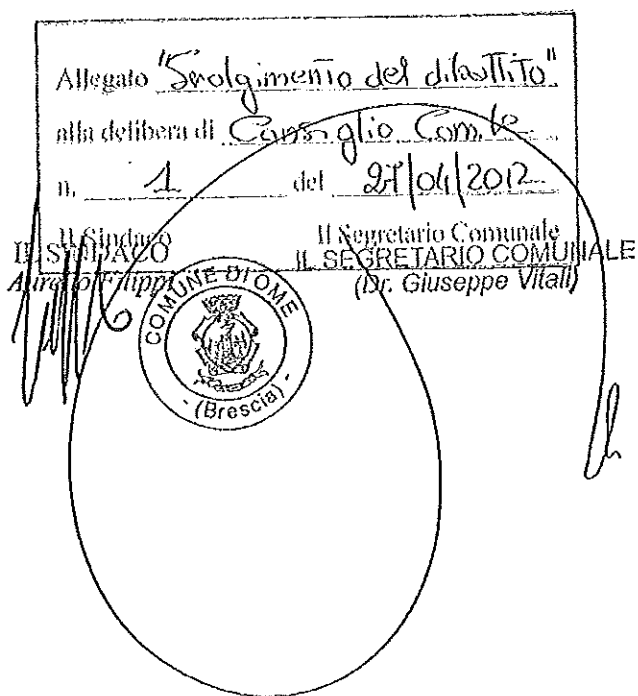 Allegato "Svolgimento del dibattito"
alla delibera di Consiglio Com.le
n. 1 del 27/04/2012
Il Sindaco Il Segretario Comunale
IL SINDACO IL SEGRETARIO COMUNALE
Aurelio Filippi (Dr. Giuseppe Vitali)
COMUNE DI OME
- (Brescia) -